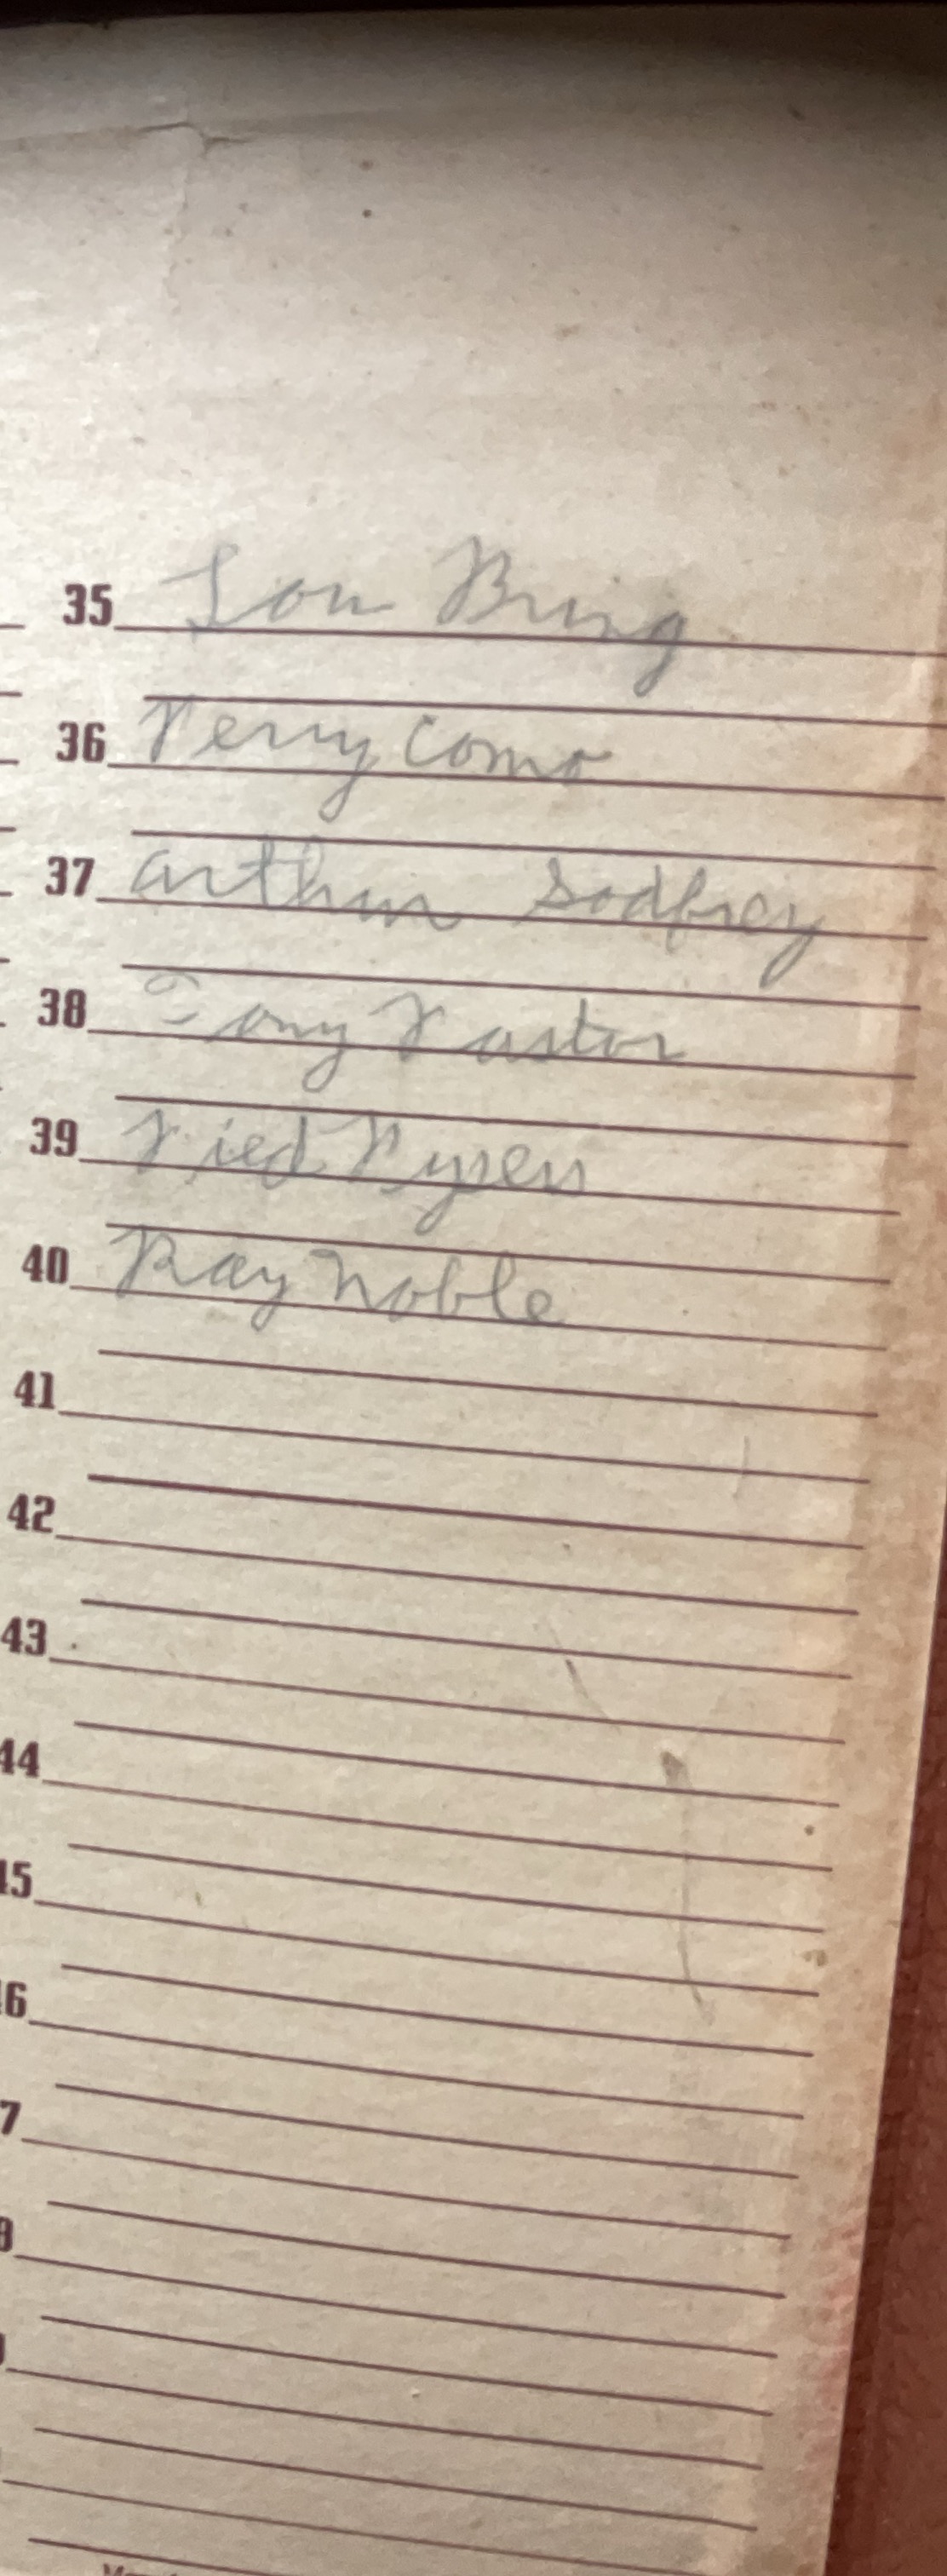 35 Lou Bring
36 Perry Como
37 Arthur Godfrey
38 Tony Pastor
39
40 Ray Noble
41
42
43
44
45
46
7